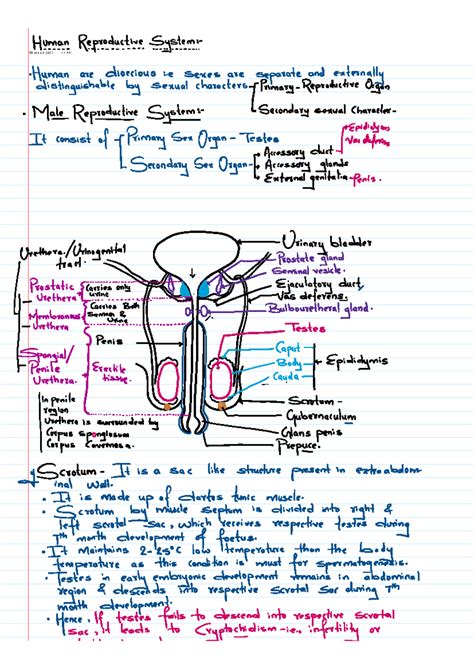 Human Reproductive System:-
Human are dioecious i.e sexes are separate and externally
distinguishable by sexual characters-
Primary - Reproductive Organ
Secondary sexual Character-
Male Reproductive System:-
It consist of
Primary Sex Organ - Testes
Secondary Sex Organ-
Accessory duct
Epididymis
Vas deferens
Accessory glands
External genitalia - Penis.
Urethera/Urinogenital
tract.
Prostatic
Urethera
Carries only
urine
Membranous
Urethera
Carries Both
Semen &
Urine
Spongial/
Penile
Urethera.
Penis
Erectile
tissue.
In penile
region
Urethera is surrounded by
Corpus spongiosum
Corpus Cavernosa.
Urinary bladder
Prostate gland
Seminal vesicle.
Ejaculatory duct
Vas deferens.
Bulbourethral gland.
Testes
Caput
Body
Cauda
Epididymis
Scrotum -
Gubernaculum
Glans penis
Prepuce.
Scrotum - It is a sac like structure present in extraabdom-
inal wall.
It is made up of dartos tunic muscle.
Scrotum by muscle septum is divided into right &
left scrotal sac, which receives respective testes during
7th month development of foetus.
It maintains 2-2.5°C low temperature than the body
temperature as this condition is must for spermatogenesis.
Testes in early embryonic development remains in abdominal
region & descends into respective scrotal sac during 7th
month development.
Hence, If testes fails to descend into respective scrotal
sac, it leads to Cryptochidism - i.e., infertility or